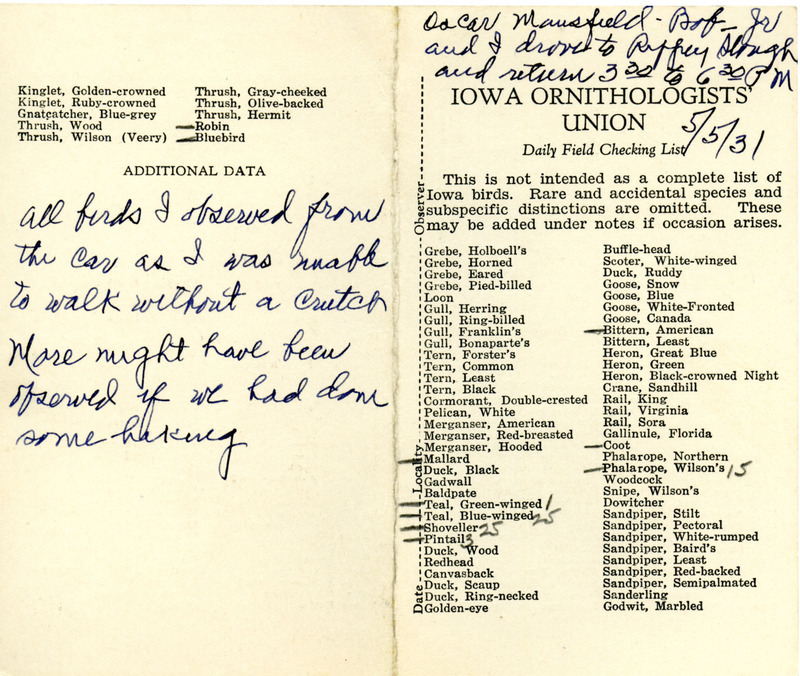 Kinglet, Golden-crowned
Kinglet, Ruby-crowned
Gnatcatcher, Blue-grey
Thrush, Wood
Thrush, Wilson (Veery)
Thrush, Gray-cheeked
Thrush, Olive-backed
Thrush, Hermit
Robin
Bluebird
ADDITIONAL DATA
All birds I observed from
the car as I was unable
to walk without a crutch
More might have been
observed if we had done
some hiking
Oscar Mansfield - Bob - Jr
and I drove to Rippey Slough
and return 3 30 to 6 30 P M
IOWA ORNITHOLOGISTS'
UNION
5/5/31
Daily Field Checking List
This is not intended as a complete list of
Iowa birds. Rare and accidental species and
subspecific distinctions are omitted. These
may be added under notes if occasion arises.
Observer
Locality
Date
Grebe, Holboell's
Grebe, Horned
Grebe, Eared
Grebe, Pied-billed
Loon
Gull, Herring
Gull, Ring-billed
Gull, Franklin's
Gull, Bonaparte's
Tern, Forster's
Tern, Common
Tern, Least
Tern, Black
Cormorant, Double-crested
Pelican, White
Merganser, American
Merganser, Red-breasted
Merganser, Hooded
Mallard
Duck, Black
Gadwall
Baldpate
Teal, Green-winged 1
Teal, Blue-winged 25
Shoveller 25
Pintail 3
Duck, Wood
Redhead
Canvasback
Duck, Scaup
Duck, Ring-necked
Golden-eye
Buffle-head
Scoter, White-winged
Duck, Ruddy
Goose, Snow
Goose, Blue
Goose, White-Fronted
Goose, Canada
Bittern, American
Bittern, Least
Heron, Great Blue
Heron, Green
Heron, Black-crowned Night
Crane, Sandhill
Rail, King
Rail, Virginia
Rail, Sora
Gallinule, Florida
Coot
Phalarope, Northern
Phalarope, Wilson's 15
Woodcock
Snipe, Wilson's
Dowitcher
Sandpiper, Stilt
Sandpiper, Pectoral
Sandpiper, White-rumped
Sandpiper, Baird's
Sandpiper, Least
Sandpiper, Red-backed
Sandpiper, Semipalmated
Sanderling
Godwit, Marbled